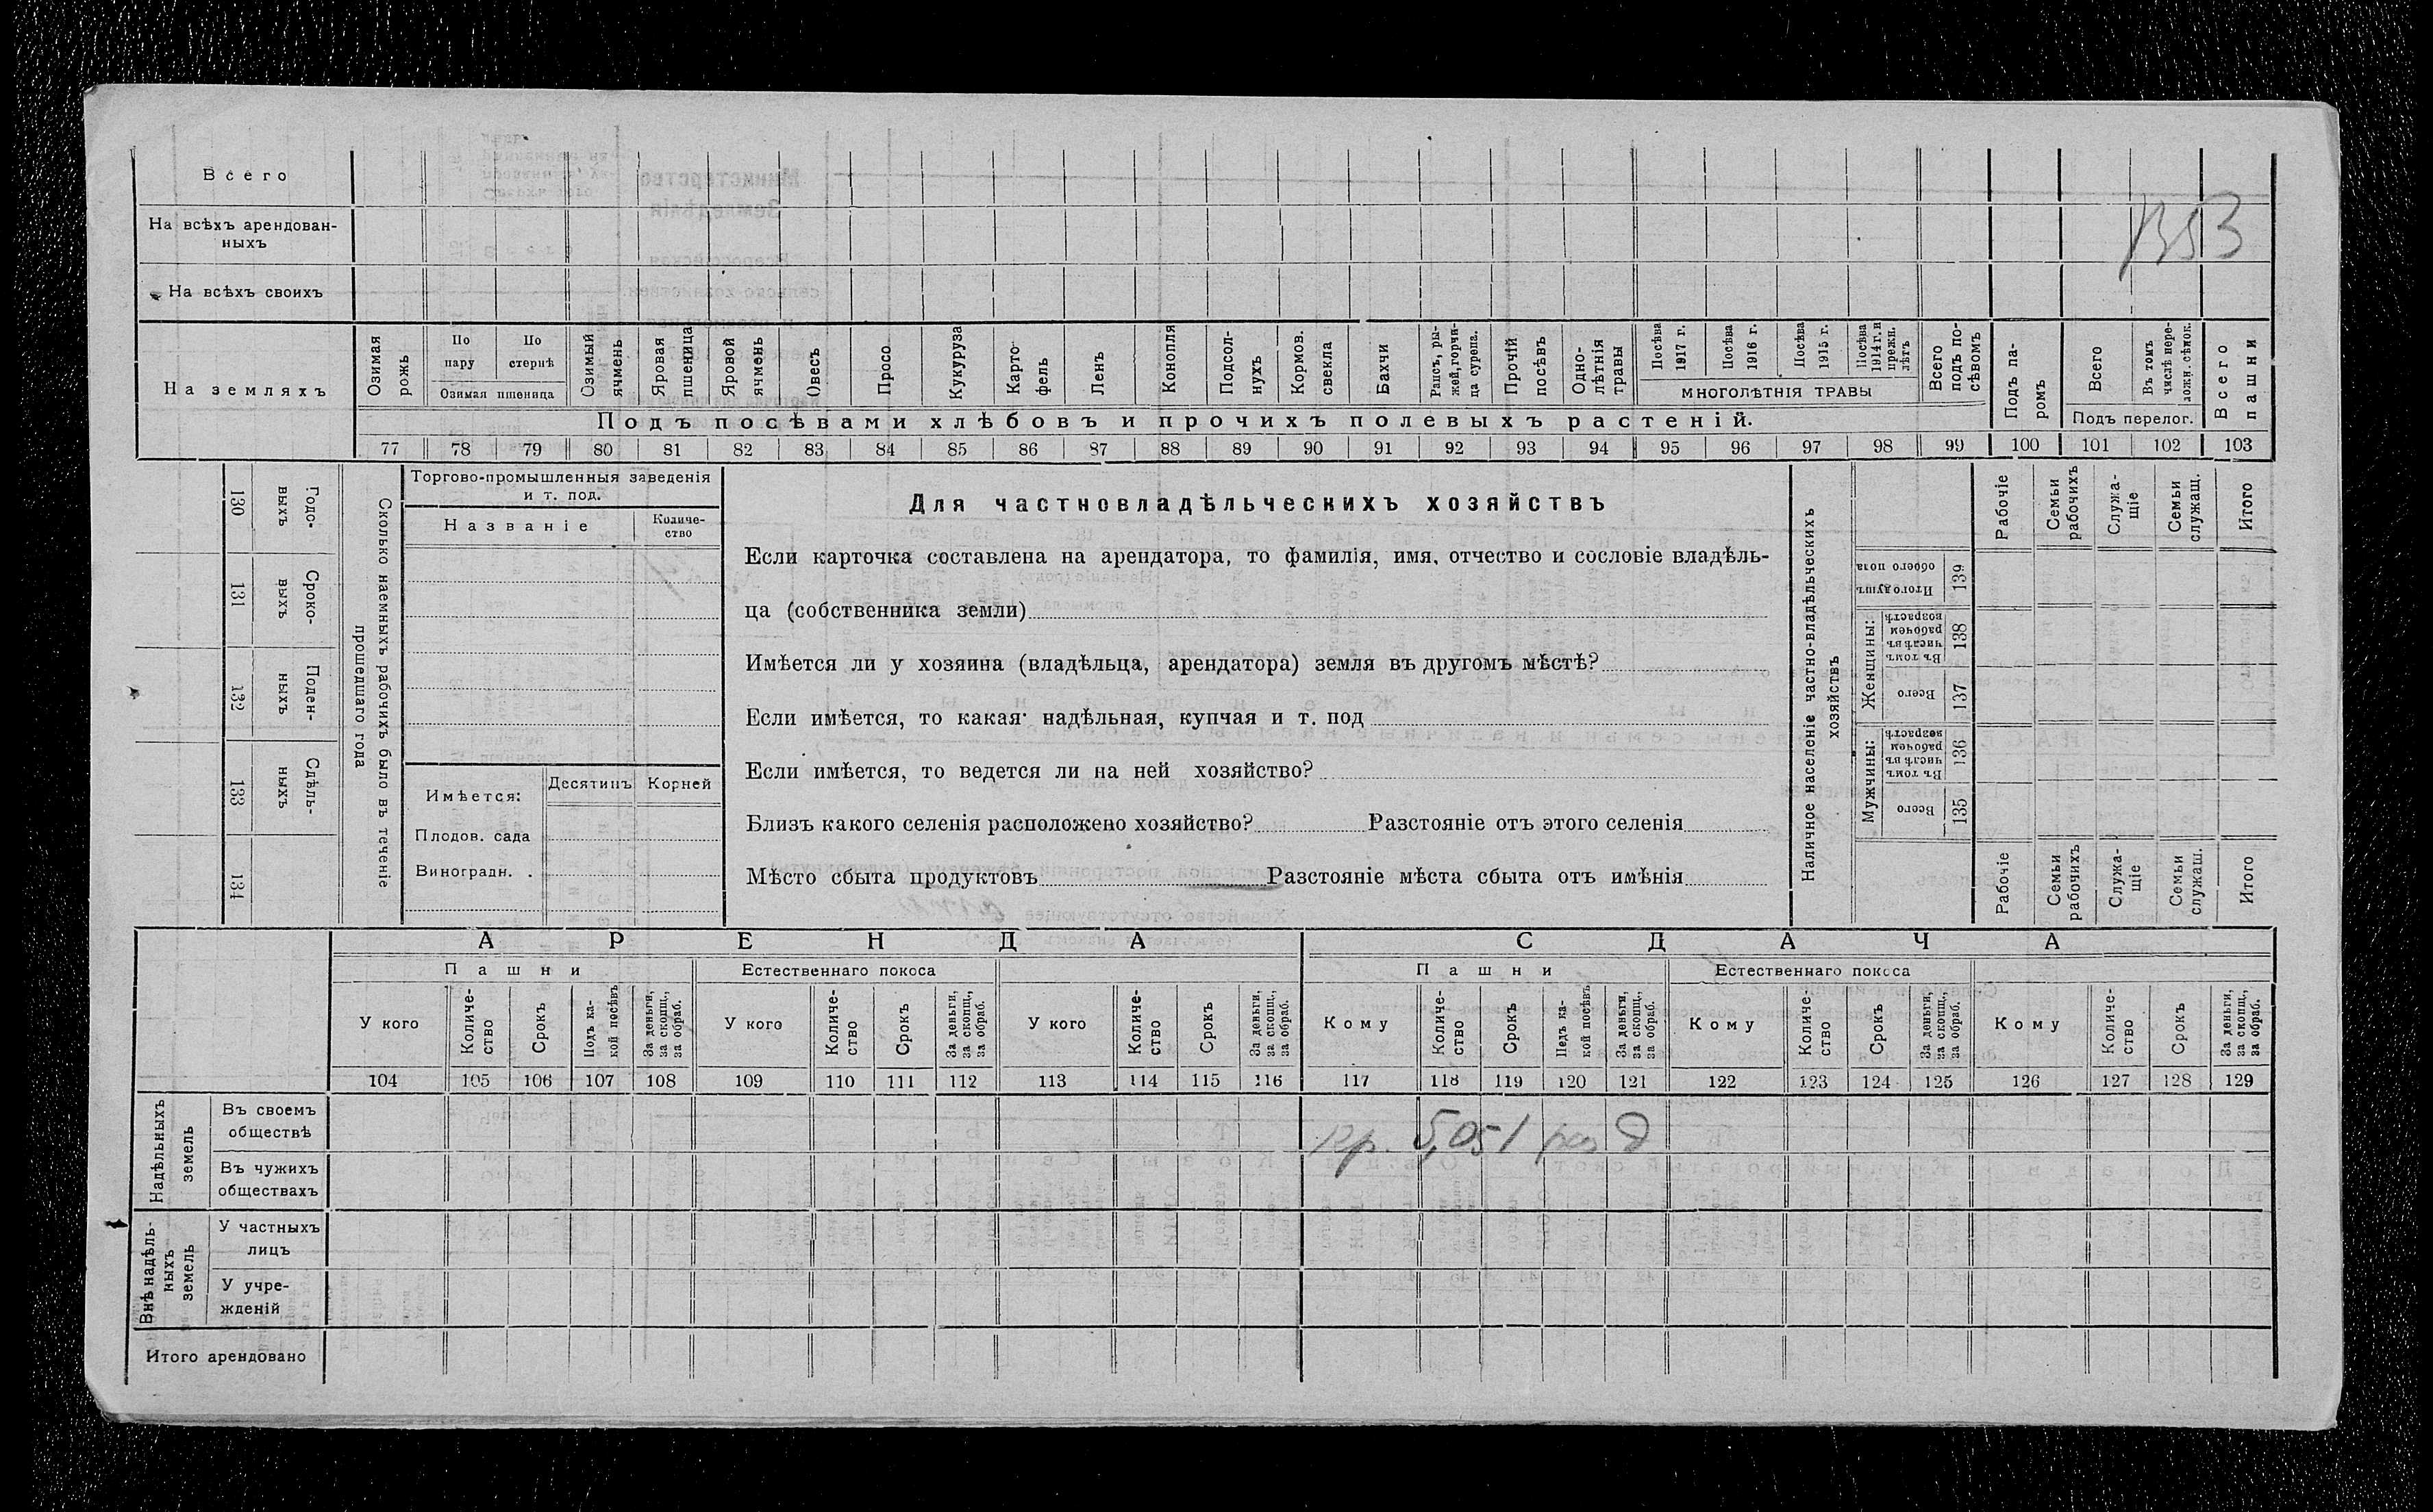 Всего
На всѣхъ арендован-
ныхъ
На всѣхъ своихъ
На земляхъ
Озимая рожь
По пару
По стернѣ
Озимая пшеница
Озимый ячмень
Яровая пшеница
Яровой ячмень
Овесъ
Просо
Кукуруза
Карто-
фель
Ленъ
Конопля
Подсол-
нухъ
Кормов.
свекла
Бахчи
Рапсъ, ры-
жей, горчи-
ца сурепа.
Прочій посѣвъ
Одно-
лѣтнія
травы
Посѣва 1917 г.
Посѣва 1916 г.
Посѣва 1915 г.
Посѣва 1914 г. и прежн. лѣтъ
МНОГОЛѢТНІЯ ТРАВЫ
Всего подъ по-
сѣвомъ
Подъ па-
ромъ
Всего
Въ томъ числѣ пере-
ложн. сѣнок.
Подъ перелог.
Всего пашни
Подъ посѣвами хлѣбовъ и прочихъ полевыхъ растеній.
77 78 79 80 81 82 83 84 85 86 87 88 89 90 91 92 93 94 95 96 97 98 99 100 101 102 103
130 131 132 133 134
Годо-
выхъ
Сроко-
выхъ
Поден-
ныхъ
Сдѣль-
ныхъ
Сколько наемныхъ рабочихъ было въ теченіе
прошедшаго года
Торгово-промышленныя заведенія
и т. под.
Названіе
Количе-
ство
Имѣется:
Десятинъ
Корней
Плодов. сада
Виноградн. .
Для частновладѣльческихъ хозяйствъ
Если карточка составлена на арендатора, то фамилія, имя, отчество и сословіе владѣль-
ца (собственника земли)
Имѣется ли у хозяина (владѣльца, арендатора) земля въ другомъ мѣстѣ?
Если имѣется, то какая: надѣльная, купчая и т. под
Если имѣется, то ведется ли на ней хозяйство?
Близъ какого селенія расположено хозяйство? Разстояніе отъ этого селенія
Мѣсто сбыта продуктовъ Разстояніе мѣста сбыта отъ имѣнія
Наличное населеніе частно-владѣльческихъ
хозяйствъ
Рабочіе
Семьи рабочихъ
Служа-
щіе
Семьи служащ.
Итого
Итого душъ обоего пола
139
Женщины:
Въ томъ числѣ въ рабочемъ возрастѣ
138
Всего
137
Мужчины:
Въ томъ числѣ въ рабочемъ возрастѣ
136
Всего
135
Рабочіе
Семьи рабочихъ
Служа-
щіе
Семьи служащ.
Итого
АРЕНДА
СДАЧА
Пашни
Естественнаго покоса
Пашни
Естественнаго покоса
У кого
Количе-
ство
Срокъ
Подъ ка-
кой посѣвъ
За деньги, за скопщ., за обраб.
У кого
Количе-
ство
Срокъ
За деньги, за скопщ., за обраб.
У кого
Количе-
ство
Срокъ
За деньги, за скопщ., за обраб.
Кому
Количе-
ство
Срокъ
Подъ ка-
кой посѣвъ
За деньги, за скопщ., за обраб.
Кому
Количе-
ство
Срокъ
За деньги, за скопщ., за обраб.
Кому
Количе-
ство
Срокъ
За деньги, за скопщ., за обраб.
104 105 106 107 108 109 110 111 112 113 114 115 116 117 118 119 120 121 122 123 124 125 126 127 128 129
Надѣльныхъ земель
Въ своемъ
обществѣ
Кр. 5,05 1 д
Въ чужихъ
обществахъ
Внѣ надѣль-
ныхъ
земель
У частныхъ
лицъ
У учре-
жденій
Итого арендовано